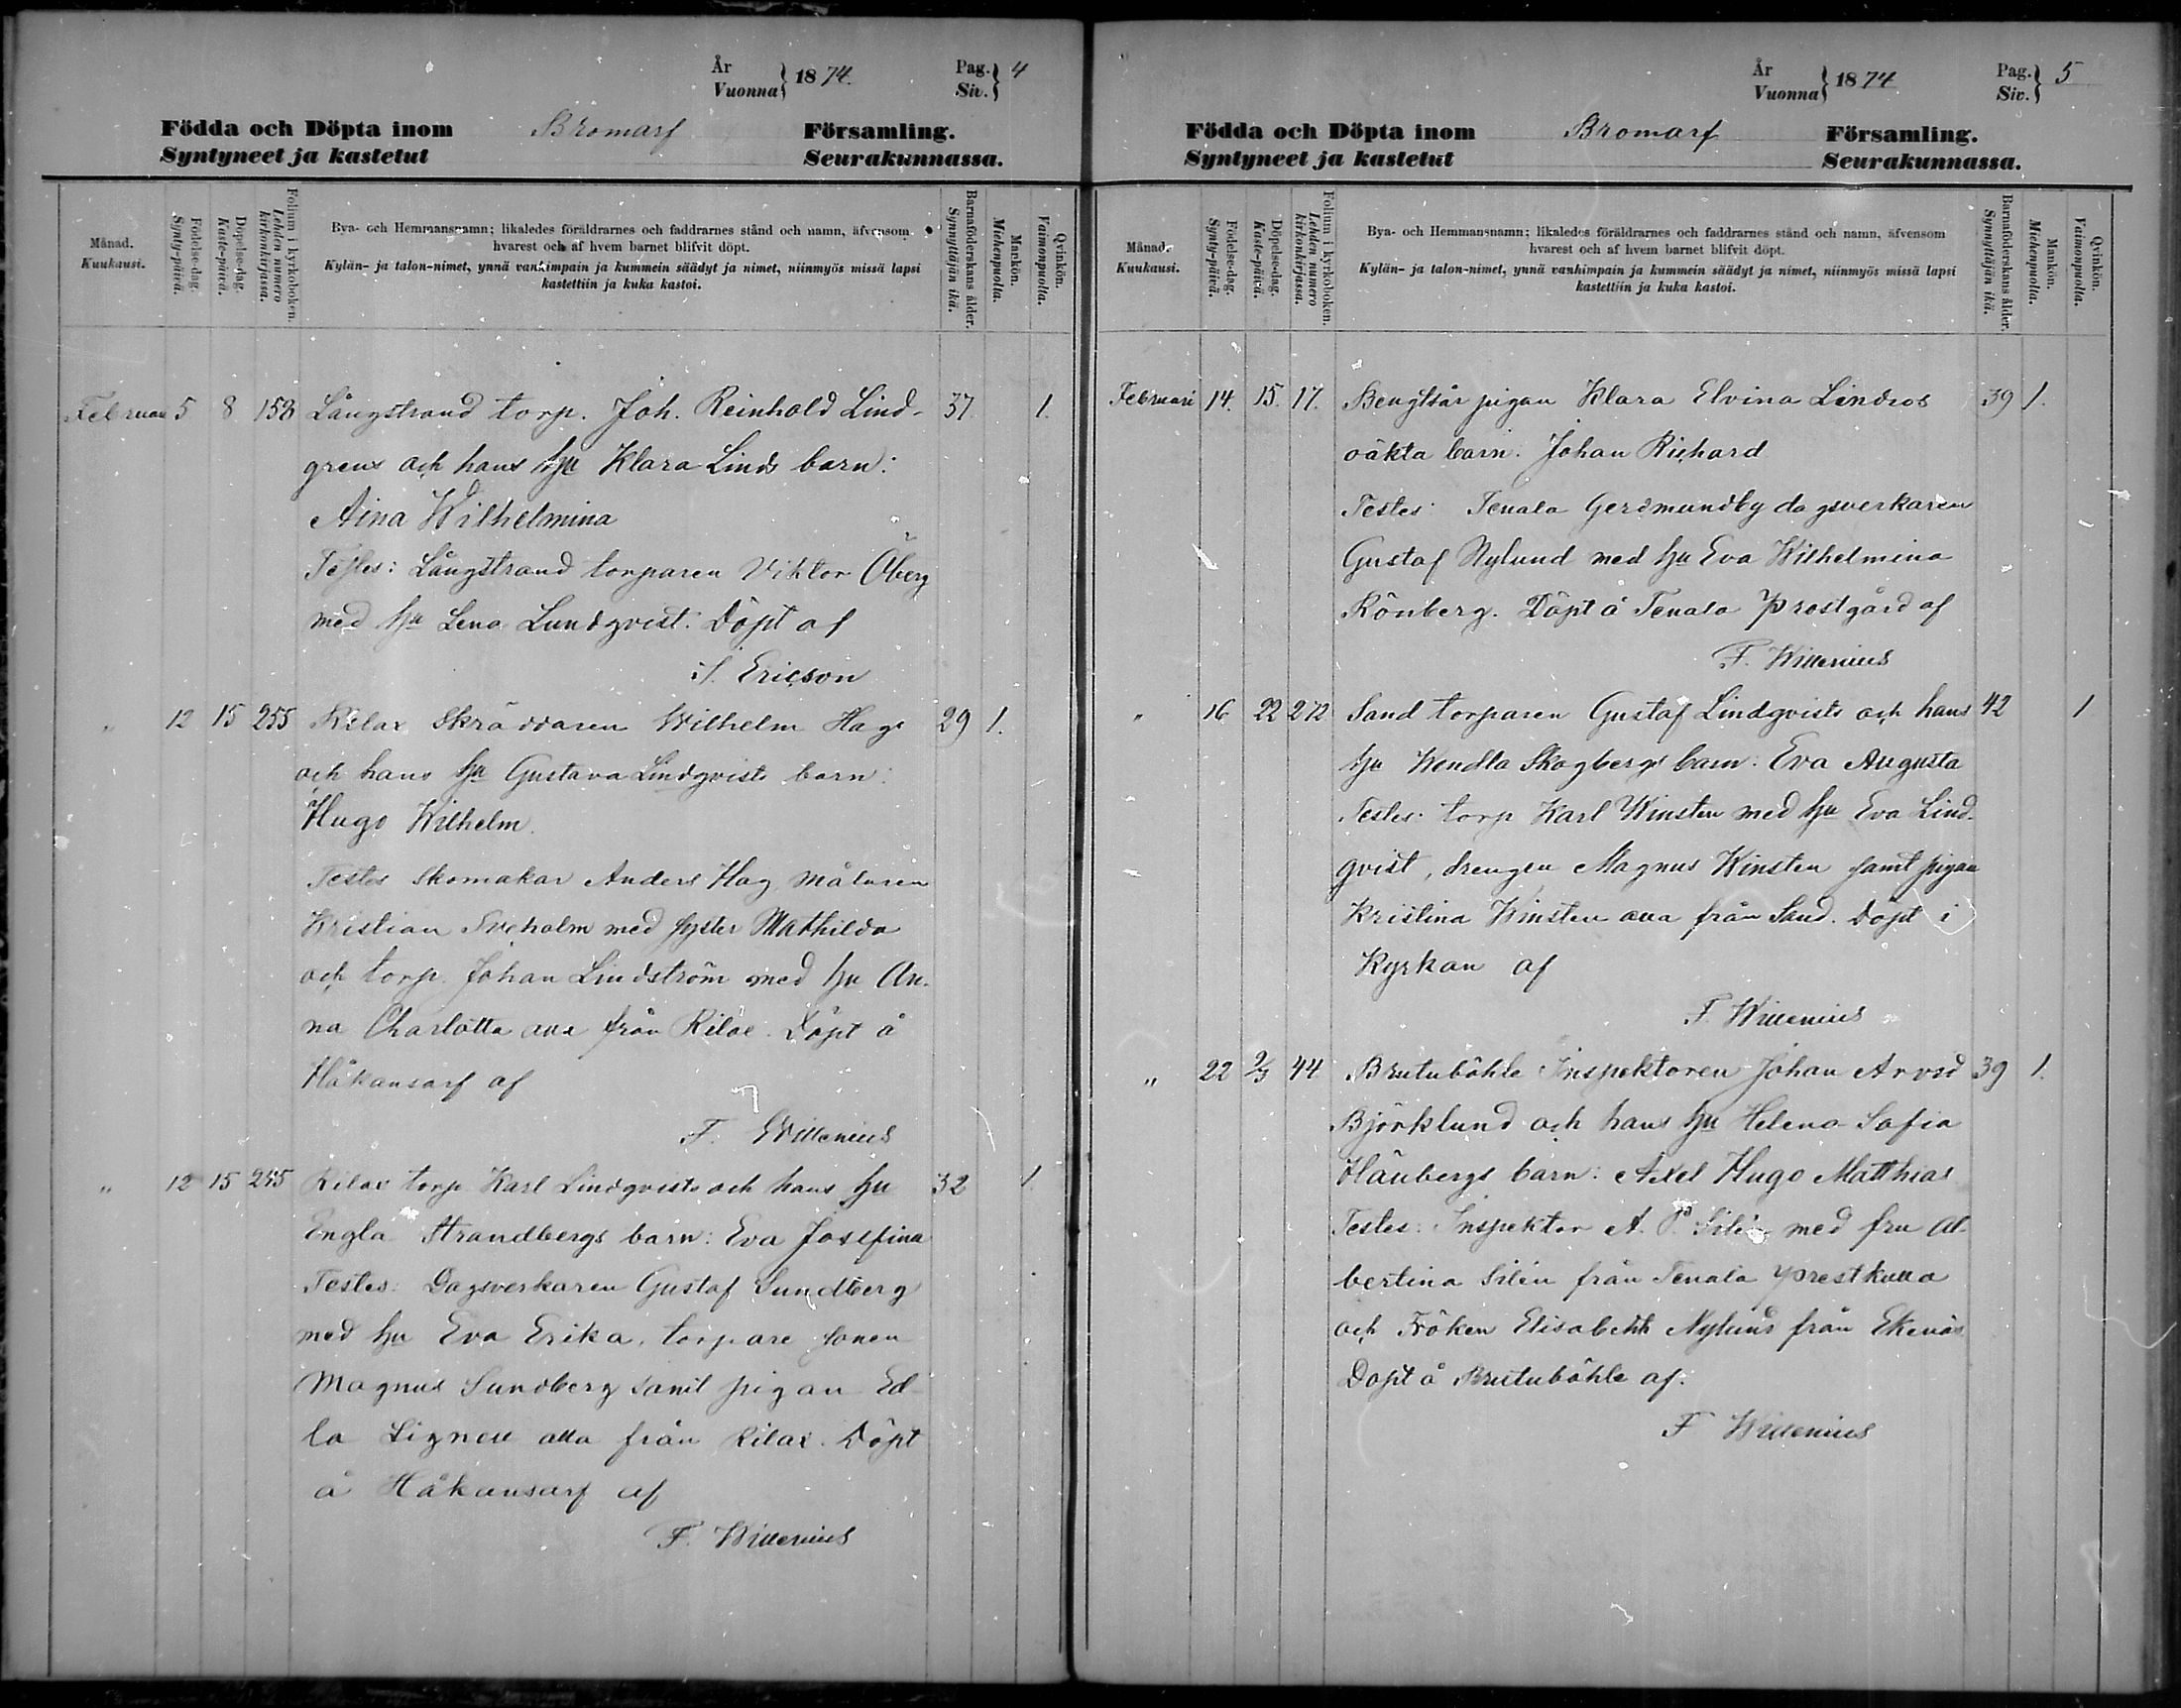 År
Vuonna } 1874.
Pag.
Siv. } 4
Födda och Döpta inom Bromarf Församling.
Syntyneet ja kastetut Seurakunnassa.
Månad.
Kuukausi.
Födelse-dag.
Synty-päivä.
Döpelse-dag.
Kaste-päivä.
Folium i kyrkoboken.
Lehden numero
kirkonkirjassa.
Bya- och Hemmansnamn; likaledes föräldrarnes och faddrarnes stånd och namn, äfvensom
hvarest och af hvem barnet blifvit döpt.
Kylän- ja talon-nimet, ynnä vanhimpain ja kummein säädyt ja nimet, niinmyös missä lapsi
kastettiin ja kuka kastoi.
Barnaföderskans ålder.
Synnyttäjän ikä.
Mankön.
Miehenpuolta.
Qvinkön.
Vaimonpuolta.
Februari 5 8 158 Långstrand torp. Joh. Reinhold Lind- 37. 1.
grens och hans hu Klara Linds barn:
Aina Wilhelmina
Testes: Långstrand torparen Viktor Öberg
med hu Lena Lundqvist. Döpt af
S. Ericson
" 12 15 255 Rilax Skräddaren Wilhelm Hags 29 1.
och hans hu Gustava Lindqvists barn:
Hugo Wilhelm.
Testes Skomakar Anders Hag, målaren
Kristian Sveholm med syster Mathilda
och torp. Johan Lindström med hu An-
na Charlotta alla från Rilax. Döpt å
Håkansarf af
F. Willenius
" 12 15 255 Rilax torp Karl Lindqvists och hans hu 32 1.
Engla Strandbergs barn: Eva Josefina
Testes: Dagsverkaren Gustaf Sundberg
med hu Eva Erika, torpare sonen
Magnus Sundberg samt pigan Ed-
la Lignell alla från Rilax. Döpt
å Håkansarf af
F. Willenius
År
Vuonna } 1874
Pag.
Siv. } 5
Födda och Döpta inom Bromarf Församling.
Syntyneet ja kastetut Seurakunnassa.
Månad.
Kuukausi.
Födelse-dag.
Synty-päivä.
Döpelse-dag.
Kaste-päivä.
Folium i kyrkoboken.
Lehden numero
kirkonkirjassa.
Bya- och Hemmansnamn; likaledes föräldrarnes och faddrarnes stånd och namn, äfvensom
hvarest och af hvem barnet blifvit döpt.
Kylän- ja talon-nimet, ynnä vanhimpain ja kummein säädyt ja nimet, niinmyös missä lapsi
kastettiin ja kuka kastoi.
Barnaföderskans ålder.
Synnyttäjän ikä.
Mankön.
Miehenpuolta.
Qvinkön.
Vaimonpuolta.
Februari 14. 15. 17. Bengtsår pigan Klara Elvina Lindros 39 1.
oäkta barn: Johan Richard
Testes: Tenala Gerdmundby dagsverkaren
Gustaf Nylund med hu Eva Wilhelmina
Rönberg. Döpt å Tenala Prostgård af
F. Willenius
" 16 22 272 Sand torparen Gustaf Lindqvists och hans 42 1
hu Wendla Skogbergs barn: Eva Augusta
Testes: torp Karl Winsten med hu Eva Lind-
qvist, drengen Magnus Winsten samt pigan
Kristina Winsten alla från Sand. Döpt i
Kyrkan af
F. Willenius
" 22 2/3 44 Brutuböhle Inspektoren Johan Arvid 39 1.
Björklund och hans hu Helena Sofia
Hänbergs barn: Axel Hugo Matthias
Testes: Inspektor A. P. Silén med fru Al-
bertina Silén från Tenala Prestkulla
och Fröken Elisabeth Nylund från Ekenäs
Döpt å Brutuböhle af:
F Willenius